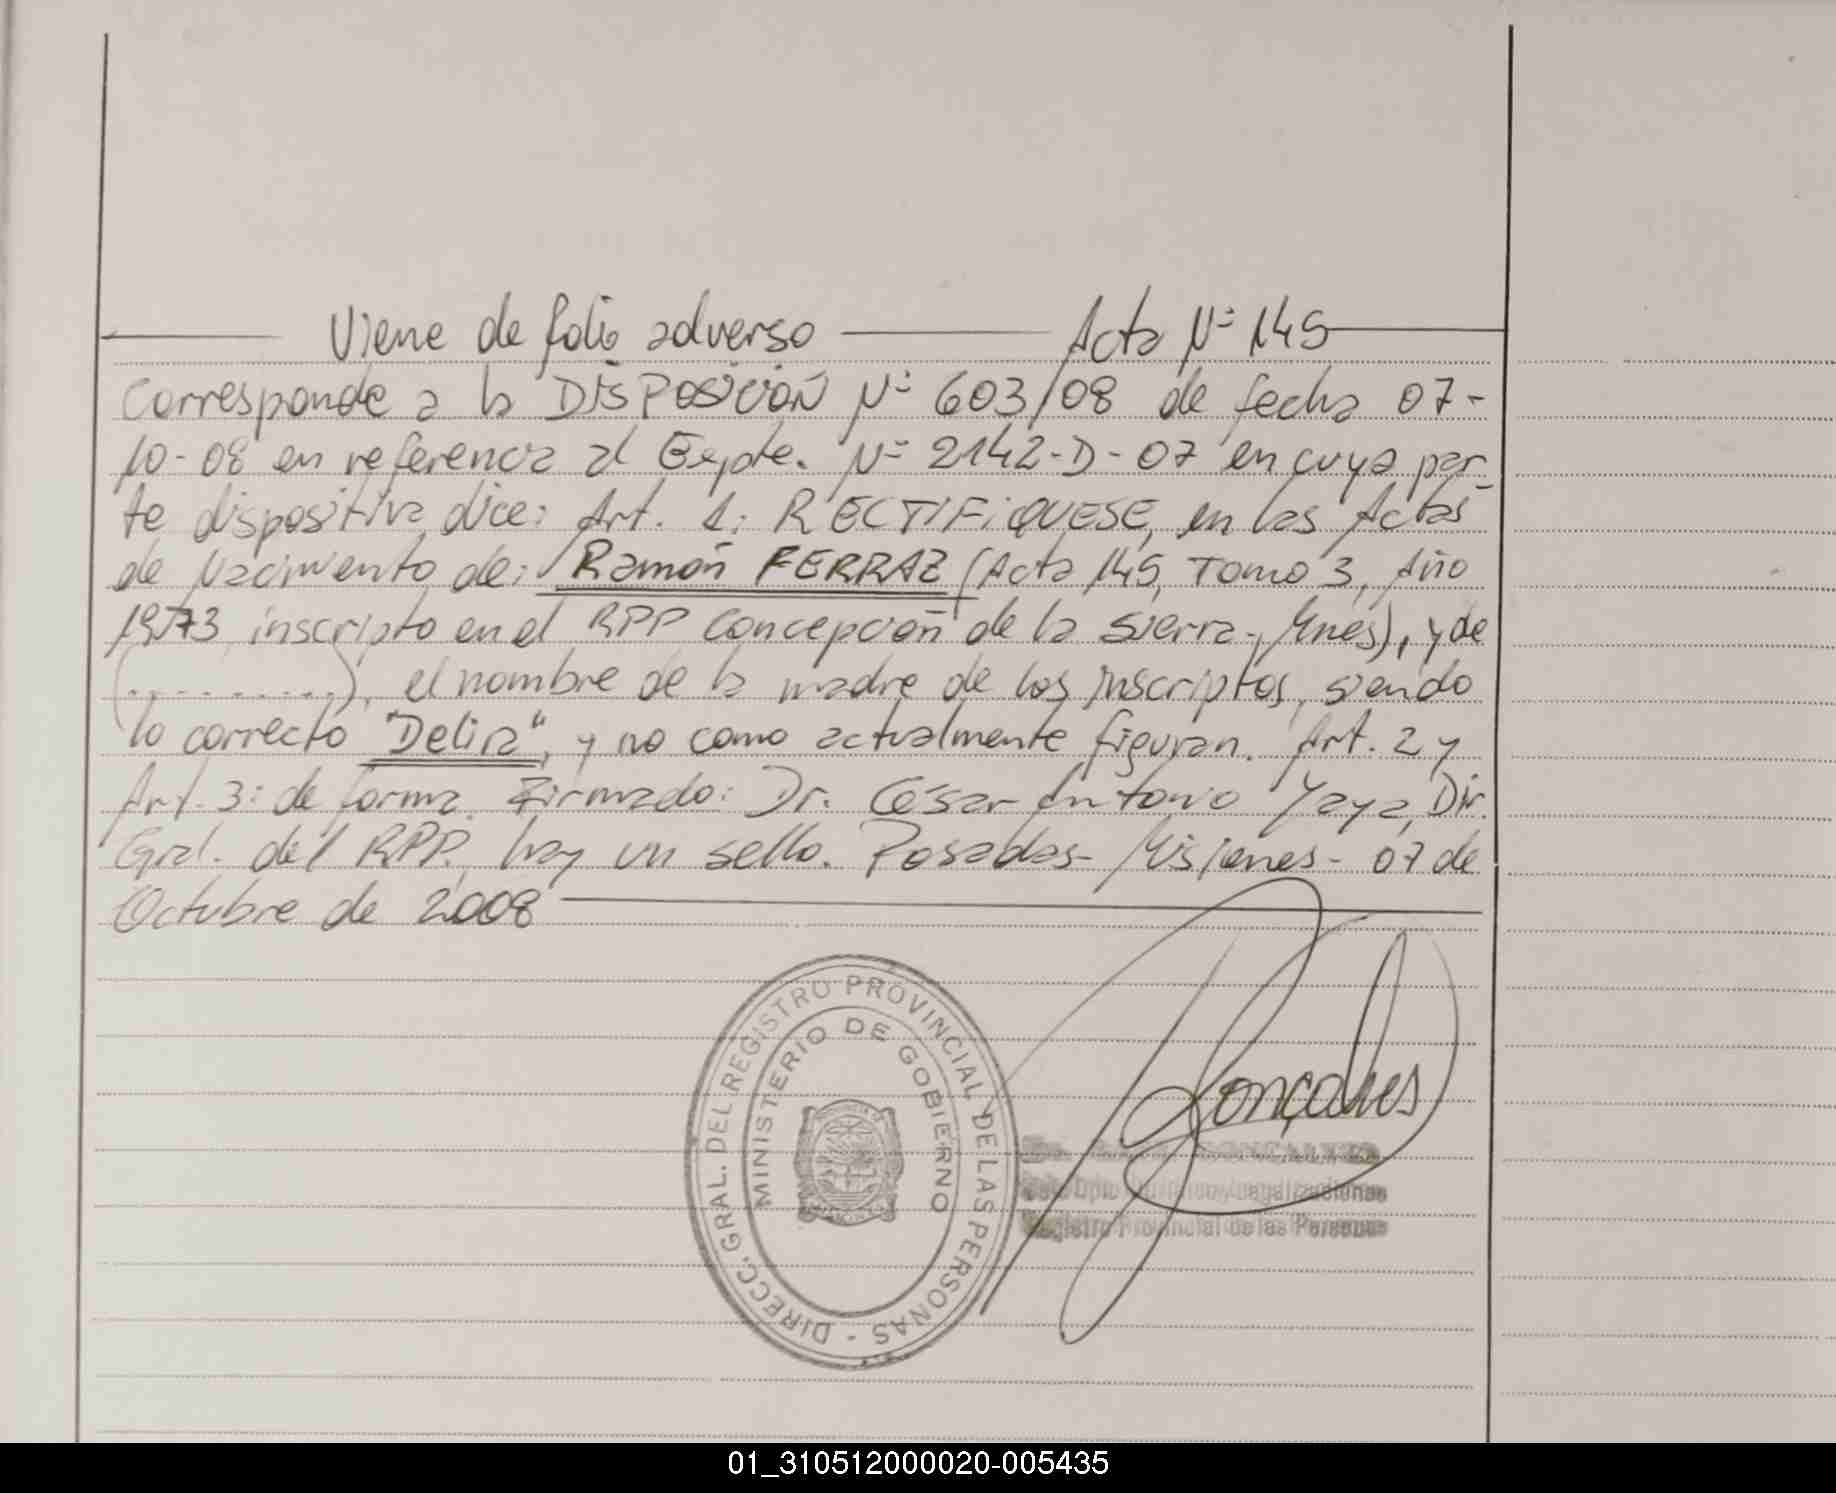 Viene de folio adverso Acta Nº 145
Corresponde a la DISPOSICIÓN Nº 603/08 de fecha 07-
10-08 en referencia al Expte. Nº 2142-D-07 en cuya par-
te dispositiva dice: Art. 1: RECTIFIQUESE, en las Actas
de Nacimiento de: Ramón FERRAZ (Acta 145, Tomo 3, Año
1973, inscripto en el RPP Concepción de la Sierra-, Mnes), y de
(...........), el nombre de la madre de los inscriptos, siendo
lo correcto "Delira", y no como actualmente figuran. Art. 2 y
Art. 3: de forma. Firmado: Dr. César Antonio Yaya, Dir.
Gral. del RPP. hay un sello. Posadas- Misiones- 07 de
Octubre de 2008
DIRECC. GRAL. DEL REGISTRO PROVINCIAL DE LAS PERSONAS -
MINISTERIO DE GOBIERNO
Gonçalves
Registro Provincial de las Personas
01_310512000020-005435